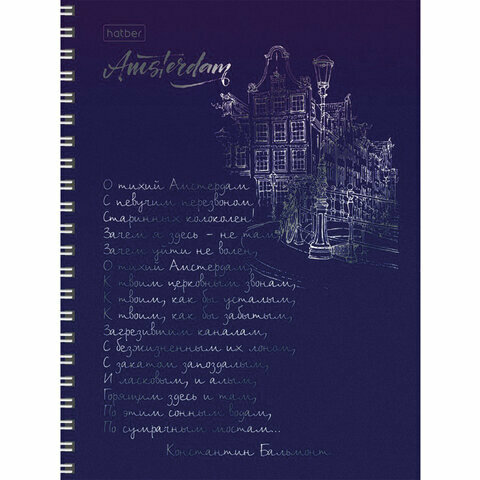 hatber
Amsterdam
О тихий Амстердам
С певучим перезвоном
Старинных колоколен!
Зачем я здесь - не там,
Зачем уйти не волен,
О тихий Амстердам,
К твоим церковным звонам,
К твоим, как бы усталым,
К твоим, как бы забытым,
Загрезившим каналам,
С безжизненным их лоном,
С закатом запоздалым,
И ласковым, и алым,
Горящим здесь и там,
По этим сонным водам,
По сумрачным мостам...
Константин Бальмонт